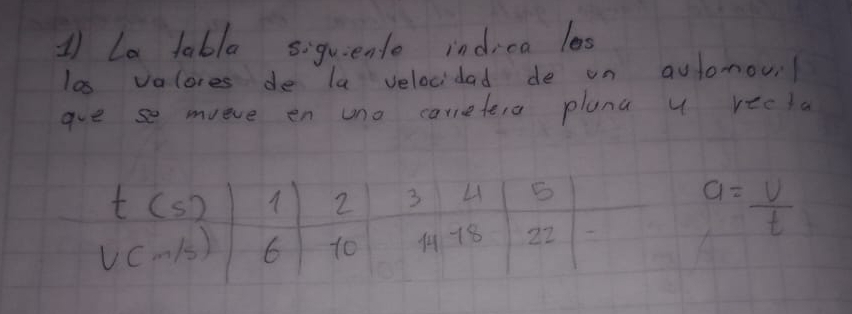 1) La tabla siguiente indica los
los valores de la velocidad de un automovil
que se mueve en una carretera plana y recta
t (s) | 1 | 2 | 3 4 | 5 |
V (m/s) | 6 | 10 | 14 18 | 22 | -
a = v/t